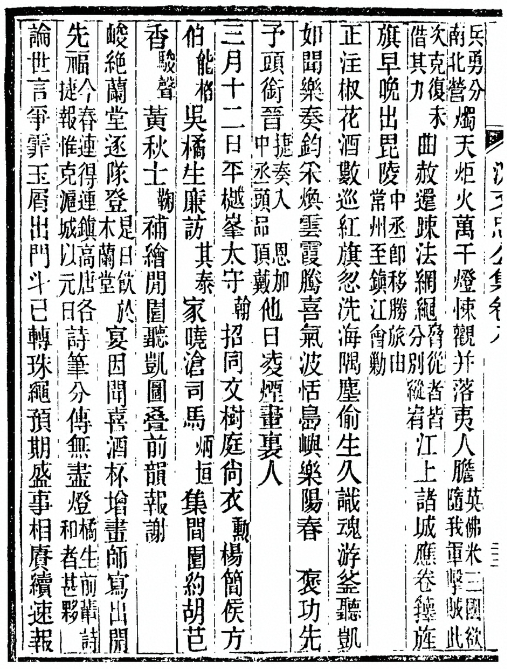 兵勇分南北營燭天炬火萬千燈悚觀并落夷人膽英佛米三國欲隨我軍擊賊此
次克復未借其力曲赦還疎法網繩脅從者皆分別縱宥江上諸城應卷籜旌
旗早晚出毘陵中丞卽移勝旅由常州至鎭江會勦
正注椒花酒數巡紅旗忽洗海隅塵偷生久識魂游釜聽凱
如聞樂奏鈞采煥雲霞騰喜氣波恬島嶼樂陽春襃功先
予頭銜晉捷奏入恩加中丞頭品頂戴他日凌煙畫裏人
三月十二日平樾峯太守翰招同文樹庭尙衣勳楊簡侯方
伯能格吳橘生廉訪其泰家曉滄司馬炳垣集間園約胡芑
香駿聲黃秋士鞠補繪開園聽凱圖叠前韻報謝
峻絕蘭堂逐隊登是日飲於木蘭堂宴因聞喜酒杯增畫師寫出開
先福今春連得連鎭高唐各捷報惟克滬城以元日詩筆分傳無盡燈橘生前輩詩和者甚夥
論世言爭霏玉屑出門斗已轉珠繩預期盛事相賡續速報